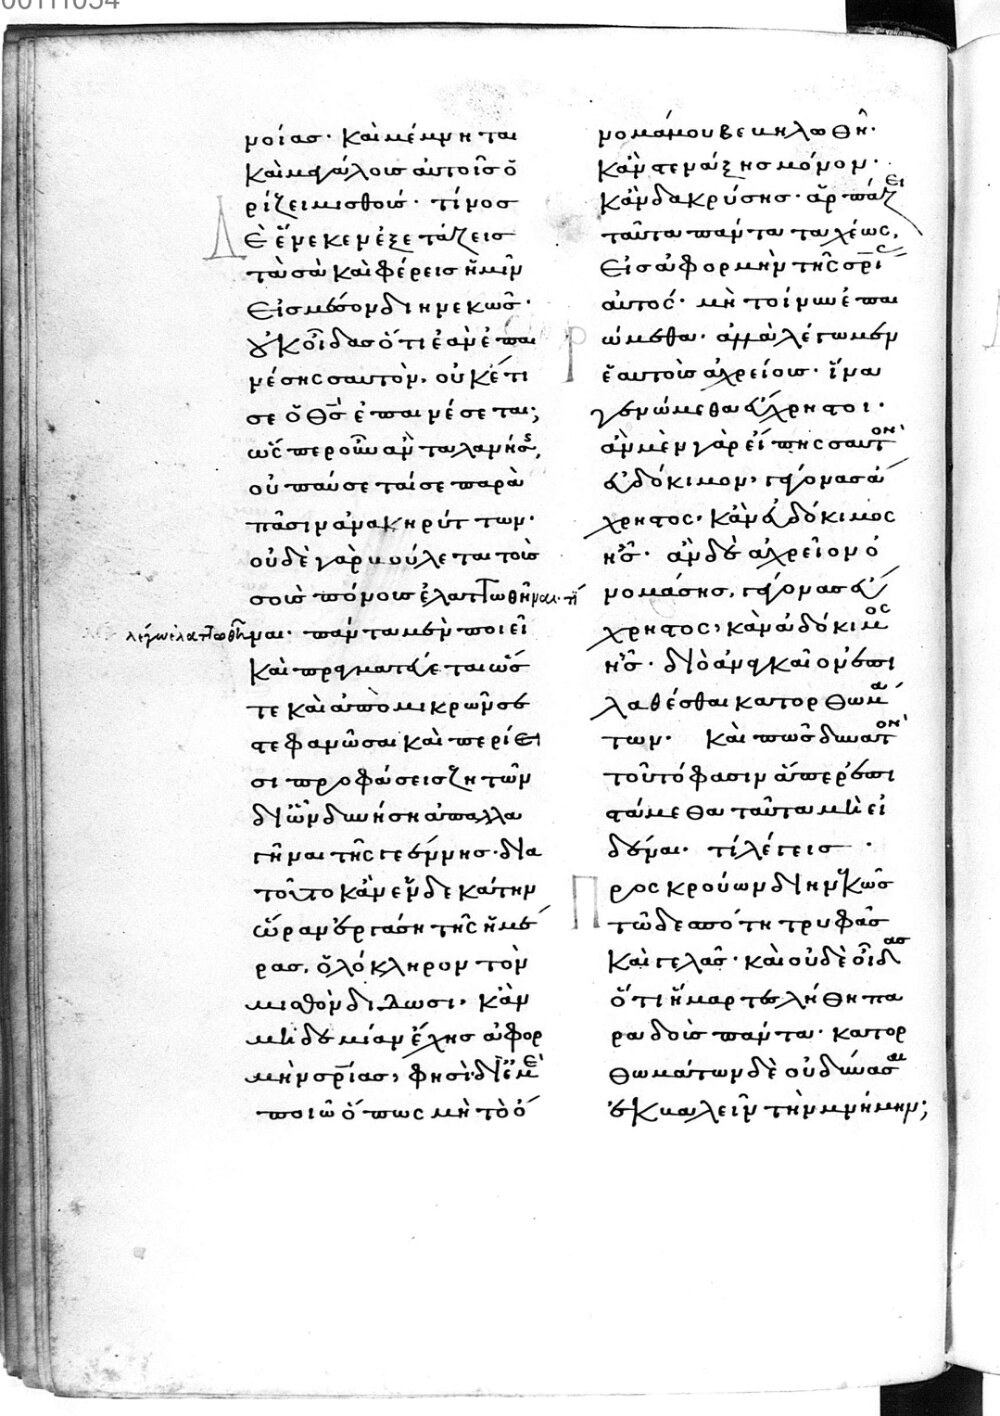 00111034
νοίας· καὶ μέμνηται
καὶ μεγάλους αὐτοῖς ὁ
ρίζει μισθούς· τίνος
Δ
ὲ ἕνεκεν ἐξετάζεις
τὰ σὰ καὶ φέρεις ἡμῖν
εἰς μέσον διηνεκῶς·
οὐκ οἶδας ὅτι ἐὰν ἐπαι
νέσῃς σαυτὸν, οὐκέτι
σε ὁ θς ἐπαινέσεται;
ὥσπερ οὖν ἂν ταλανίσῃς,
οὐ παύσεταί σε παρὰ
πᾶσιν ἀνακηρύττων·
οὐδὲ γὰρ βούλεται τοὺς
σοὺς πόνους ἐλαττωθῆναι· τί
λέγω ἐλαττωθῆναι· πάντα μὲν ποιεῖ
καὶ πραγματεύεται ὥς
τε καὶ ἀπὸ μικρῶν σε
στεφανῶσαι καὶ περίει
σι προφάσεις ζητῶν
δι' ὧν δυνήσῃ ἀπαλλα
γῆναι τῆς γεέννης· δια
τοῦτο κἂν ἑνδεκάτην
ὥραν ἐργάσῃ τῆς ἡμέ
ρας, ὁλόκληρον τὸν
μισθὸν δίδωσι· κἂν
μηδεμίαν ἔχῃς ἀφορ
μὴν σρίας, φησὶ· δι' ἐμὲ
ποιῶ ὅπως μὴ τὸ ὄ
νομά μου βεβηλωθῇ·
κἂν στενάξῃς μόνον·
κἂν δακρύσῃς· ἁρπάζει
ταῦτα πάντα ταχέως,
εἰς ἀφορμὴν τῆς σρίας
αὐτός· μὴ τοίνυν ἐπαι
ρώμεθα· ἀλλὰ λέγωμεν
ἑαυτοὺς ἀχρείους· ἵνα
γενώμεθα εὔχρηστοι·
ἂν μὲν γὰρ εἴπῃς σαυτὸν
εὐδόκιμον, γέγονας ἄ
χρηστος· κἂν εὐδόκιμος
ᾖς· ἂν δὲ ἀχρεῖον ὀ
νομάσῃς, γέγονας εὔ
χρηστος, κἂν ἀδόκιμος
ᾖς· διὸ ἀναγκαῖον ἐπι
λαθέσθαι κατορθωμά
των· καὶ πῶς δυνατὸν
τοῦτό φασιν ἅπερ ἐπι
στάμεθα ταῦτα μὴ εἰ
δέναι· τί λέγεις·
Π
ροσκρούων διηνεκῶς
τῷ δεσπότῃ τρυφᾷς
καὶ γελᾷς· καὶ οὐδὲ οἶδας
ὅτι ἥμαρτες λήθῃ πα
ραδοὺς πάντα· κατορ
θωμάτων δὲ οὐ δύνασαι
ἐκβαλεῖν τὴν μνήμην;